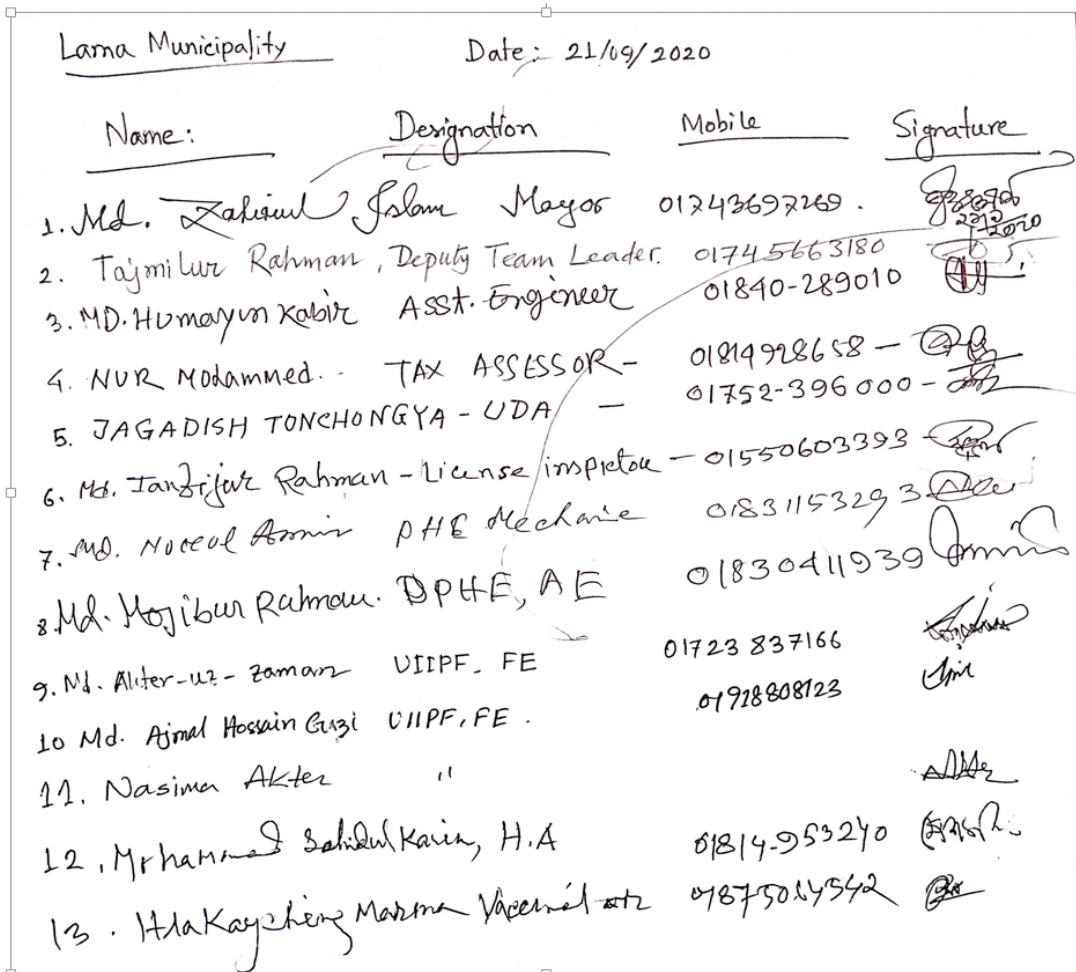 Lama Municipality Date: 21/09/2020
Name: Designation Mobile Signature
1. Md. Zahirul Islam Mayor 01743697269.
2. Tajmilur Rahman, Deputy Team Leader. 01745663180
3. MD. Humayun Kabir Asst. Engineer 01840-289010
4. NUR Modammed. - TAX ASSESSOR - 01814928658 -
5. JAGADISH TONCHONGYA - UDA - 01752-396000 -
6. Md. Tanzijur Rahman - License inspector - 01550603393 -
7. Md. Noceul Amin PHE Mechanic 01831153293
8. Md. Mojibur Rahman. DPHE, AE 01830411939
9. Md. Akter-uz-zaman UIIPF. FE 01723 837166
10 Md. Ajmal Hossain Gazi UIIPF, FE. 01928808123
11. Nasima Akter "
12. Mohammad Sahidul Karim, H.A 01814-953240
13. Hla Kaycheing Marma